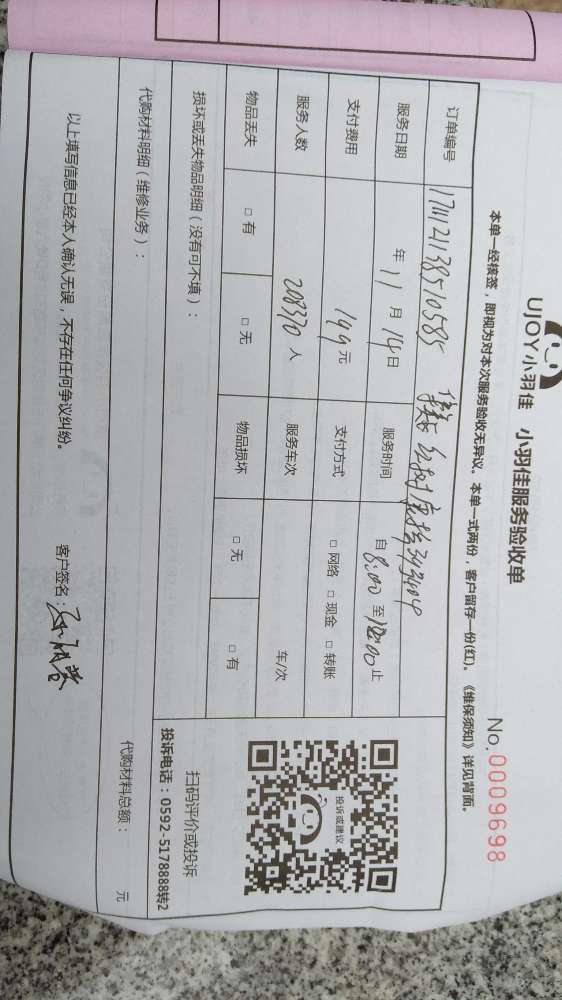 UJOY小羽佳 小羽佳服务验收单
No.0009698
本单一经核签，即视为对本次服务验收无异议。本单一式两份，客户留存一份(红)。《维保须知》详见背面。
订单编号 171121138510585
服务日期 年 11 月 14 日 服务时间 自 8:00 至 12:00 止
支付费用 199 元 支付方式 □ 网络 □ 现金 □ 转账
服务人数 208370 人 服务车次 车/次
物品丢失 □ 有 □ 无 物品损坏 □ 无 □ 有
投诉或建议
扫码评价或投诉
投诉电话：0592-5178888转2
损坏或丢失物品明细（没有可不填）：
代购材料明细（维修业务）： 代购材料总额： 元
以上填写信息已经本人确认无误，不存在任何争议纠纷。 客户签名：